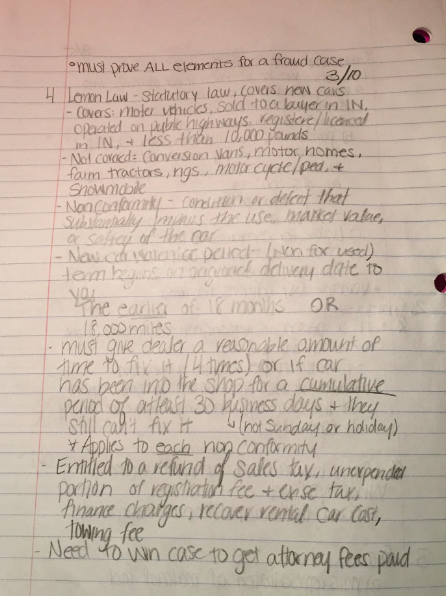 •must prove ALL elements for a fraud case
3/10
4 Lemon Law - Statutory law, covers new cars
- Covers: Motor vehicles, sold to a buyer in IN,
operated on public highways, registered/licensed
in IN, + less than 10,000 pounds
- Not covered: conversion vans, motor homes,
farm tractors, rigs, motorcycle/ped, +
Snowmobile
- Nonconformity - condition or defect that
substantially impairs the use, market value,
or safety of the car
- New car period - (Non for used)
term begins on original delivery date to
you
The earlier of 18 months OR
18,000 miles
- must give dealer a reasonable amount of
time to fix it (4 times) or if car
has been into the shop for a cumulative
period of atleast 30 business days + they
still can't fix it ↳ (not Sunday or holiday)
* Applies to each nonconformity
- Entitled to a refund of sales tax, unexpended
portion of registration fee + tax,
finance charges, recover rental car cost,
towing fee
- Need to win case to get attorney fees paid